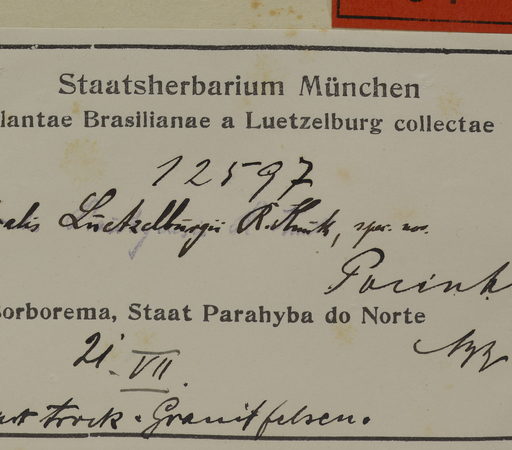 Staatsherbarium München
lantae Brasilianae a Luetzelburg collectae
12597
alis Luetzelburgii R. Knuth, spec. nov.
Pocinh
orborema, Staat Parahyba do Norte
21. VII.
trock. Granitfelsen.